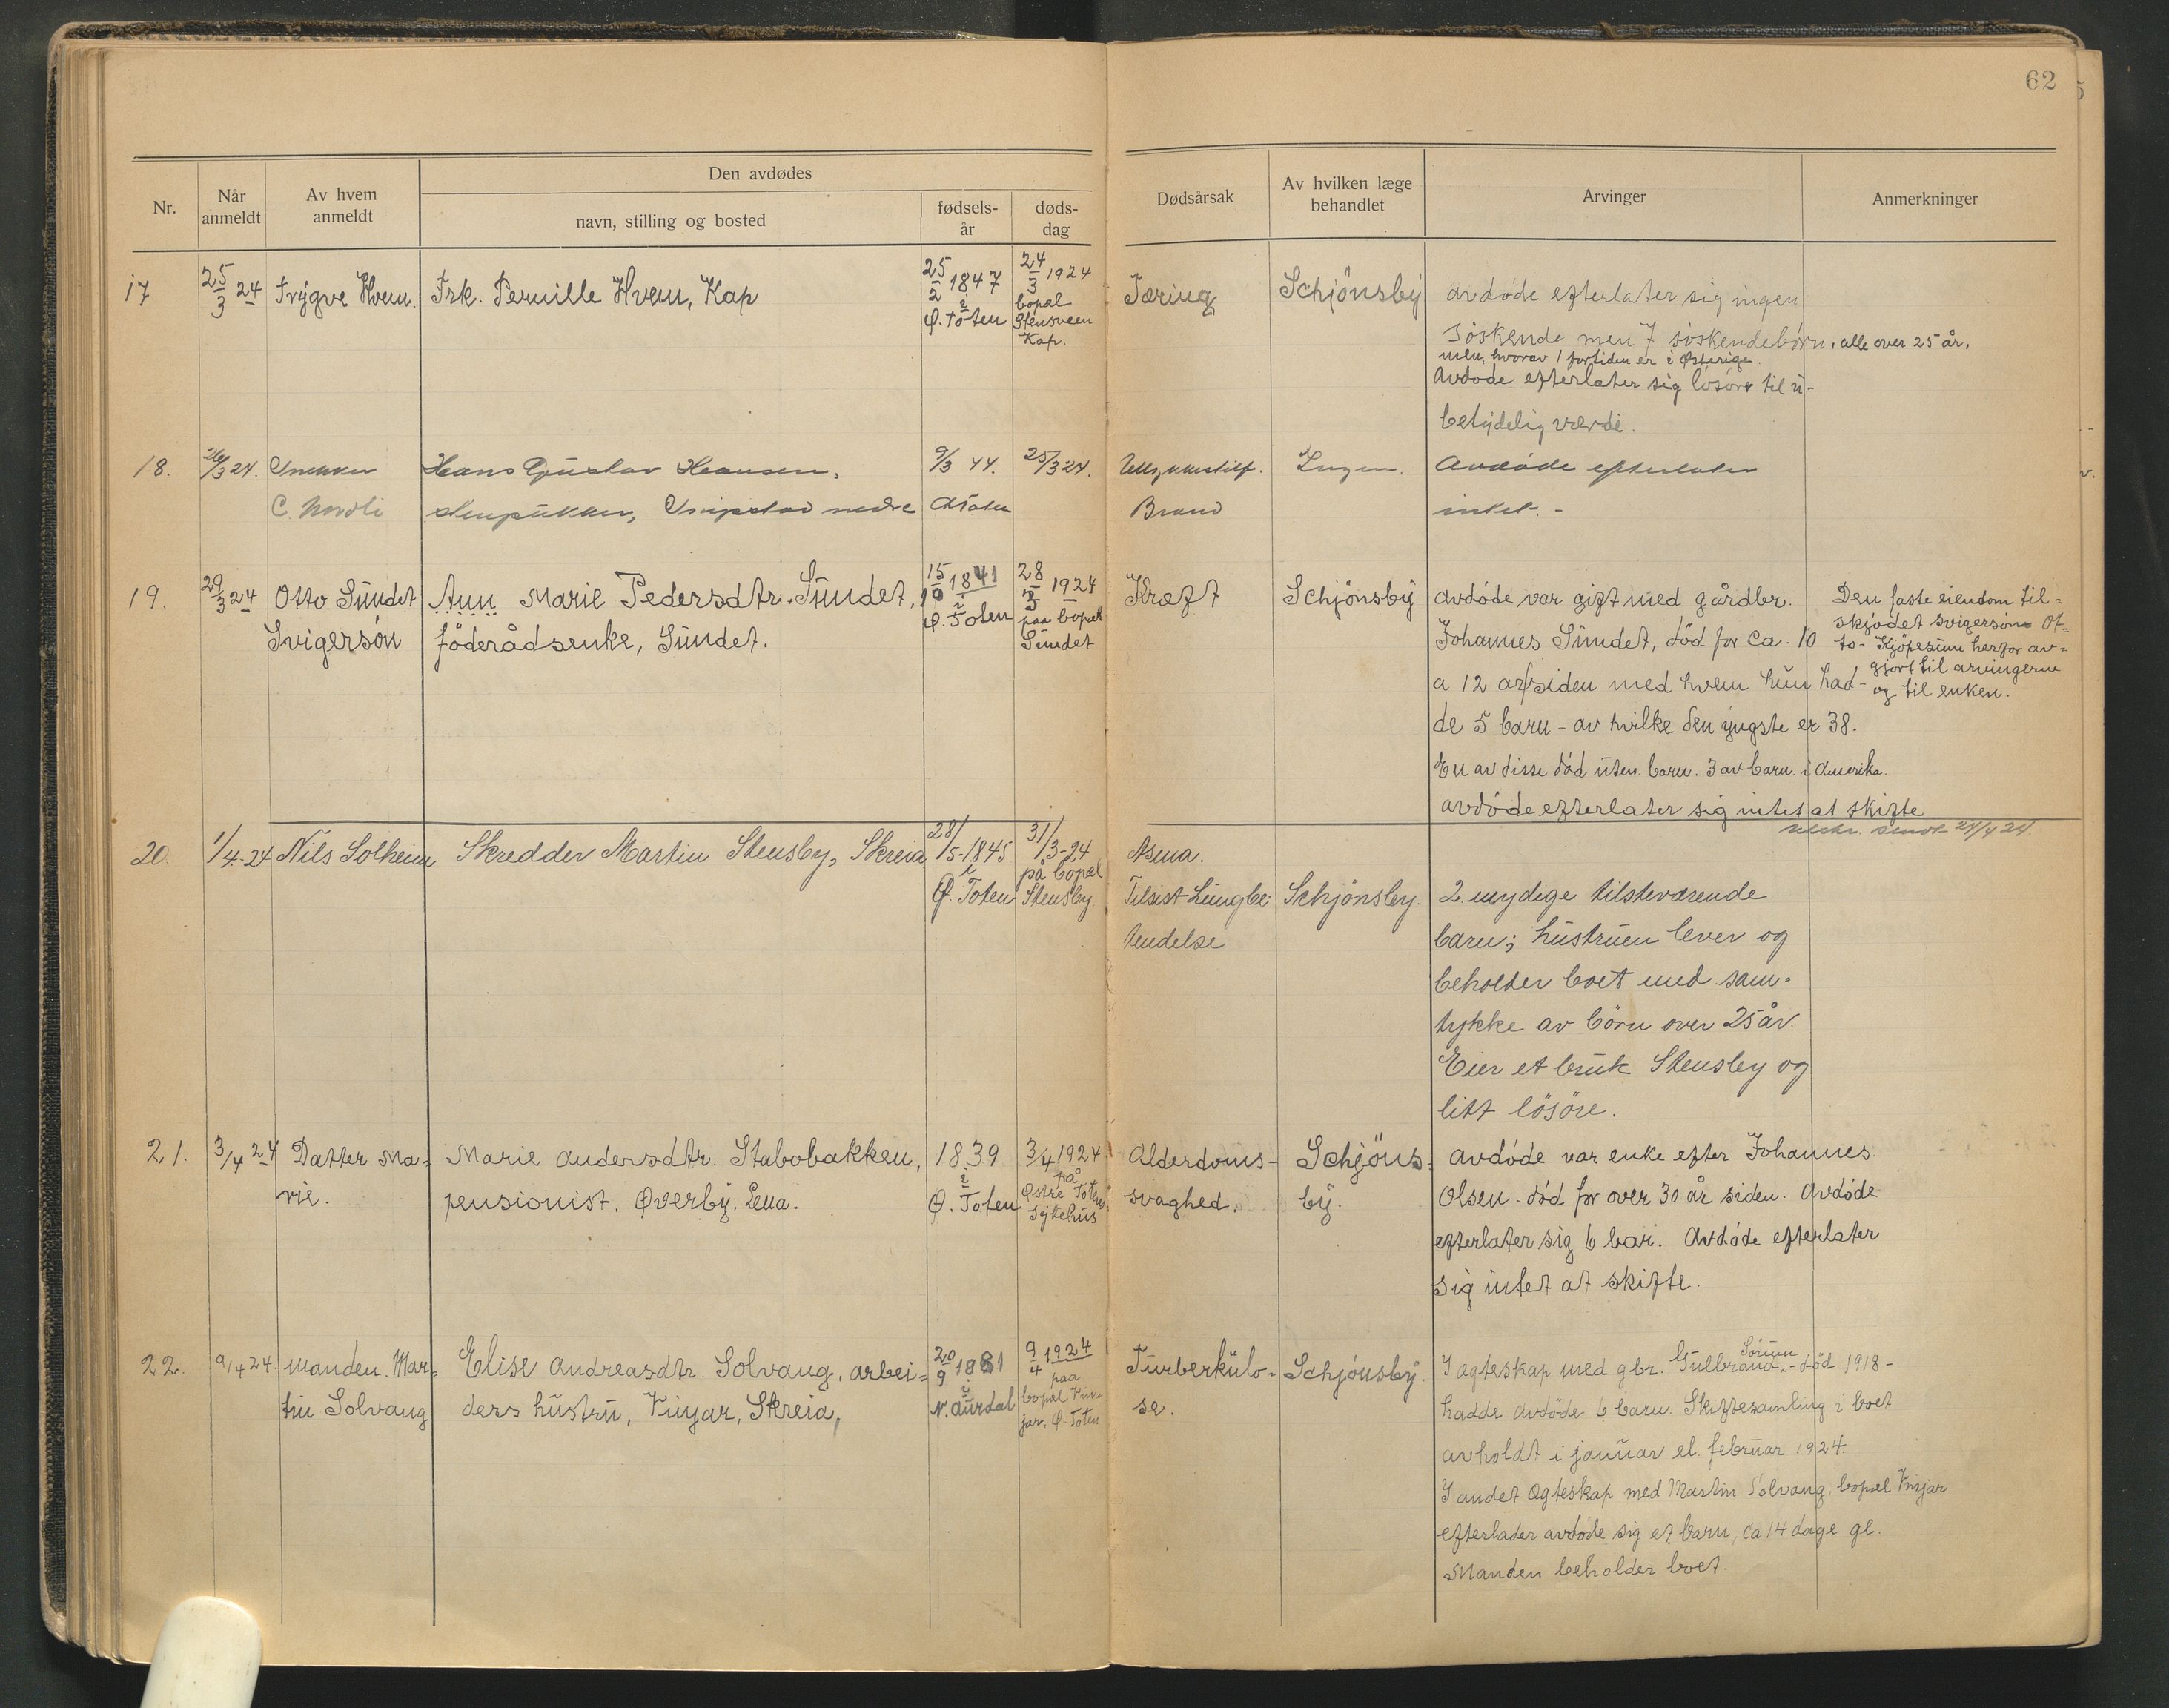 62
Nr.
Når anmeldt
Av hvem anmeldt
Den avdødes
navn, stilling og bosted
fødsels-år
døds-dag
Dødsårsak
Av hvilken læge behandlet
Arvinger
Anmerkninger
17
25/3 24
Trygve Hvem.
Frk. Pernille Hvem, Kap
25/2 1847
i
Ø. Toten
24/3 1924
bopæl
Stensveen
Kap.
Tæring
Schjønsby
Avdøde efterlater sig ingen
søskende men 7 søskendebørn, alle over 25 år,
men hvorav 1 fortiden er i Østerige.
Avdøde efterlater sig løsøre til u-
betydelig værdi.
18.
26/3 24.
Snekker
C. Nordli
Hans Gustav Hansen,
stenpukker, nedre
9/3 44.
Ø Toten
25/3 24.
Ulykkestilf.
Brand
Ingen.
Avdøde efterlater
intet. -
19.
29/3 24
Otto Sundet
Svigersøn
Ann Marie Pedersdtr. Sundet,
føderådsenke, Sundet.
15/10 1841
i
Ø. Toten
28/3 1924
paa bopæl
Sundet
Kræft
Schjønsby
Avdøde var gift med gårdbr.
Johannes Sundet, død for ca. 10
a 12 år siden med hvem hun had-
de 5 barn - av hvilke den yngste er 38.
En av disse død uten barn. 3 av barn. i Amerika.
Avdøde efterlater sig intet at skifte
Den faste eiendom til-
skjødet svigersøn Ot-
to - Kjøpesum herfor av-
gjort til arvingerne
og til enken.
Utskr. sendt 24/4 24.
20.
1/4.24
Nils Solheim
Skredder Martin Stensby, Skreia
28/5-1845
i
Ø. Toten
31/3-24
på bopæl
Stensby
Asma.
Tilsist Lungbe-
tendelse
Schjønsby.
2 mydige tilsteværende
barn; hustruen lever og
beholder boet med sam-
tykke av börn over 25 år.
Eier et bruk Stensby og
litt lösöre.
21.
3/4 24
Datter Ma-
rie.
Marie Andersdtr. Stabobakken,
pensionist. Øverby. Lena.
1839
i
Ø. Toten
3/4 1924
på
Østre Toten
Sykehus
Alderdoms-
svaghed.
Schjøns-
by.
Avdøde var enke efter Johannes
Olsen - død for over 30 år siden. Avdøde
efterlater sig 6 barn. Avdøde efterlater
sig intet at skifte.
22.
9/4 24.
Manden. Mar-
tin Solvang
Elise Andreasdtr. Solvang, arbei-
ders hustru, Vinjar, Skreia,
20/9 1881
i
N. Aurdal
9/4 1924
paa
bopæl Vin-
jar, Ø. Toten
Turberkulo-
se.
Schjønsby.
I ægteskap med gbr. Gulbrand Sørum - død 1918 -
hadde avdøde 6 barn. Skiftesamling i boet
avholdt i januar el. februar 1924.
I andet ægteskap med Martin Solvang, bopæl Vinjar
efterlader avdøde sig et barn, ca 14 dage gl.
Manden beholder boet.